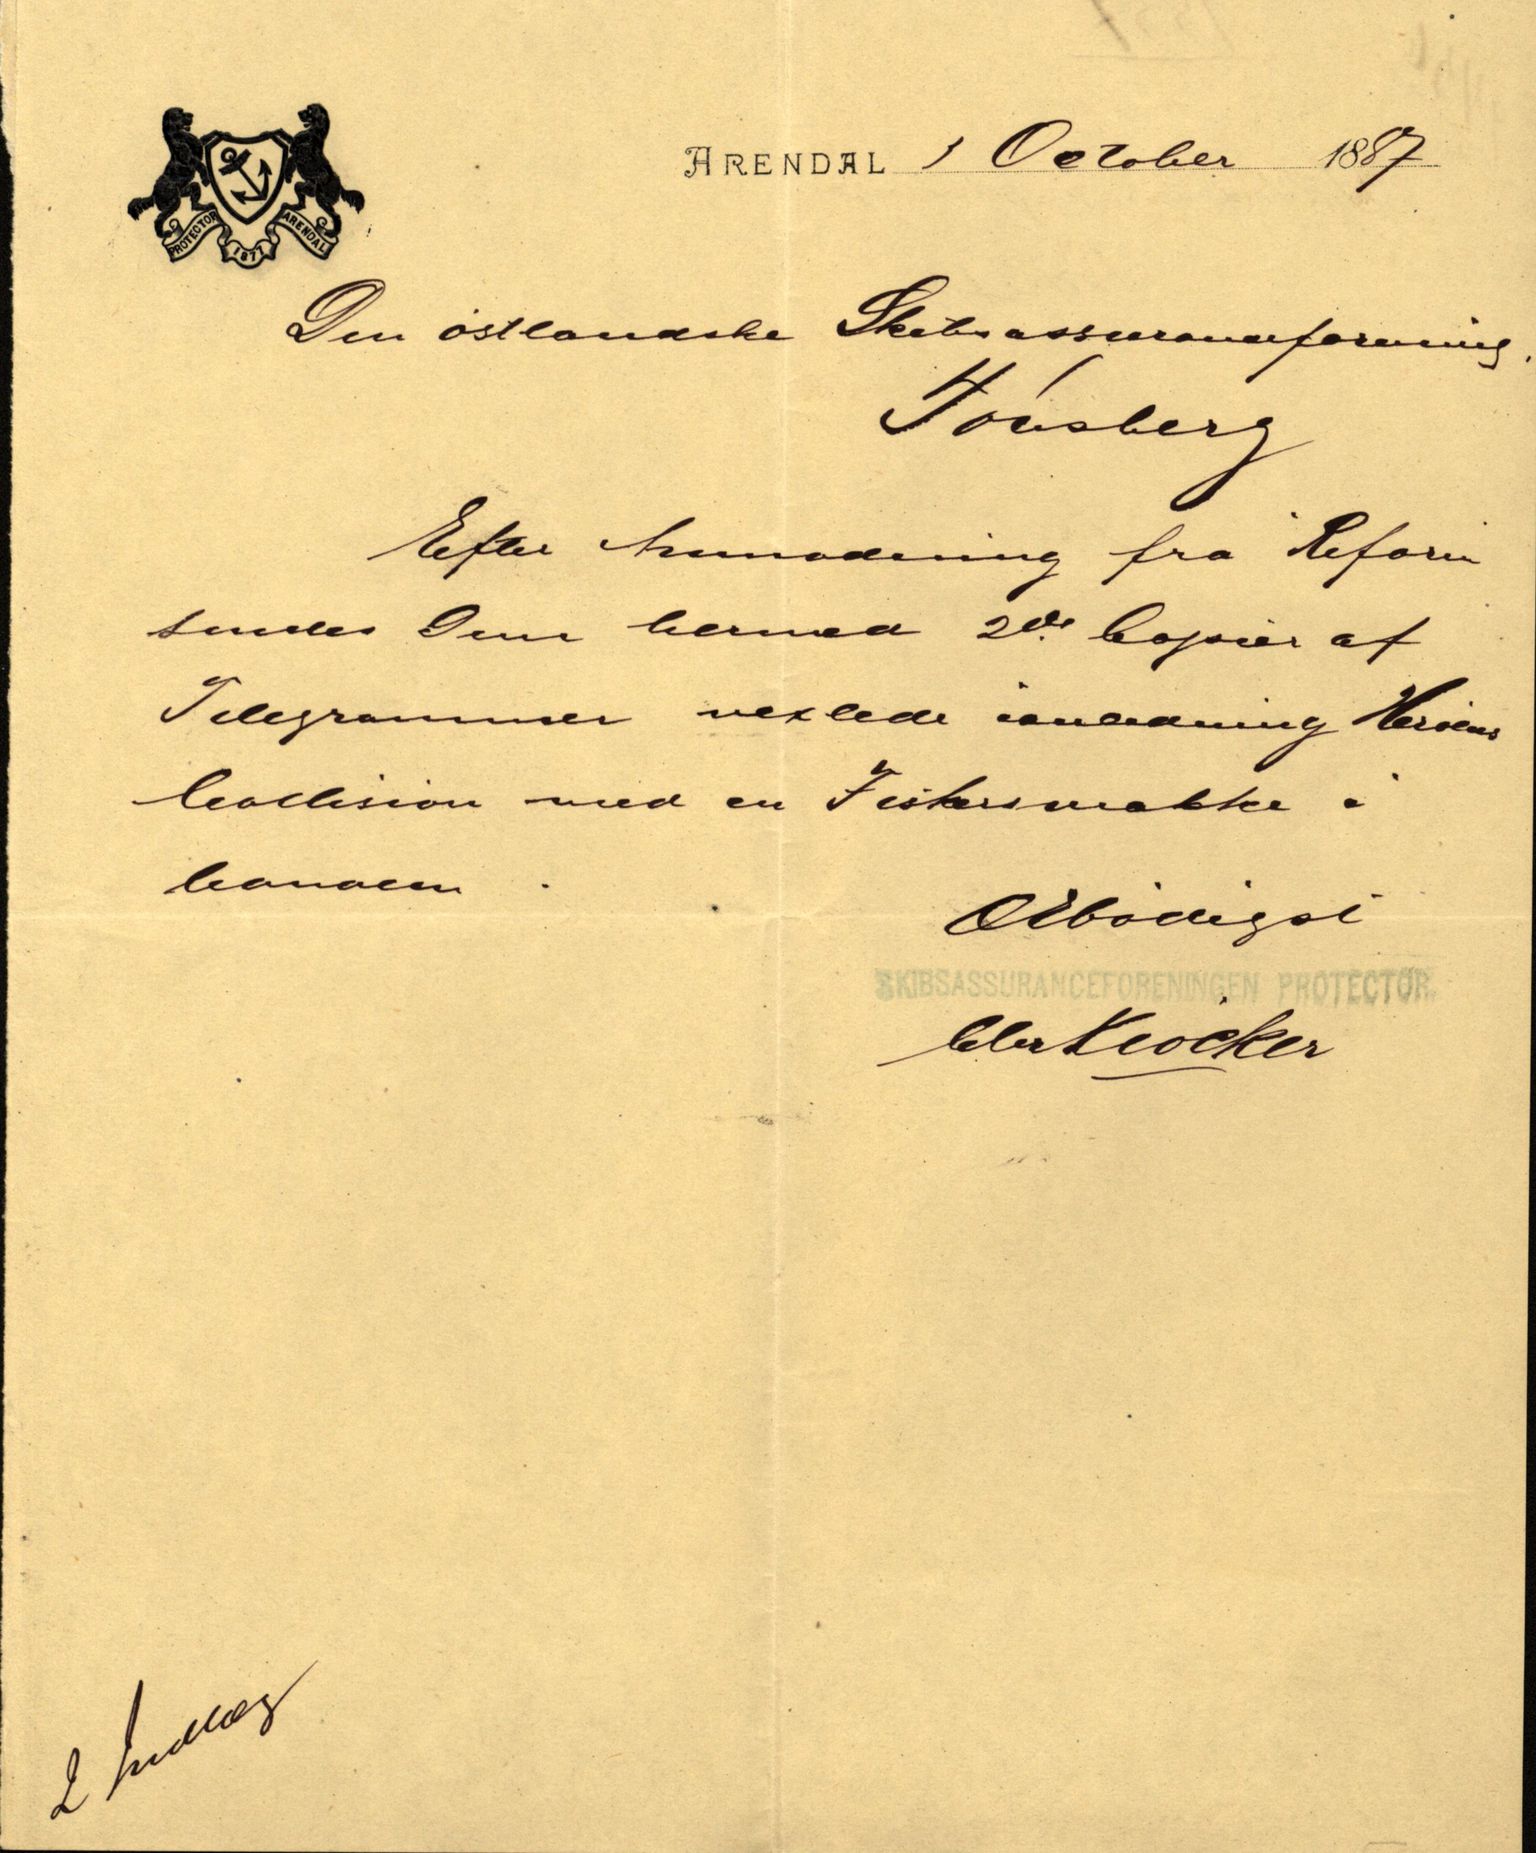 PROTECTOR 1877 ARENDAL
ARENDAL 1 October 1887
Den östlandske Skibsassuranceforening.
Tönsberg
Efter Anmodning fra Reform
sendes Dem hermed 2de Copier af
Telegrammer vexlede ianledning
Collision med en Fiskersmakke i
Canalen.
Ærbödigst
SKIBSASSURANCEFORENINGEN PROTECTOR.
Klöcker
2 Indlæg